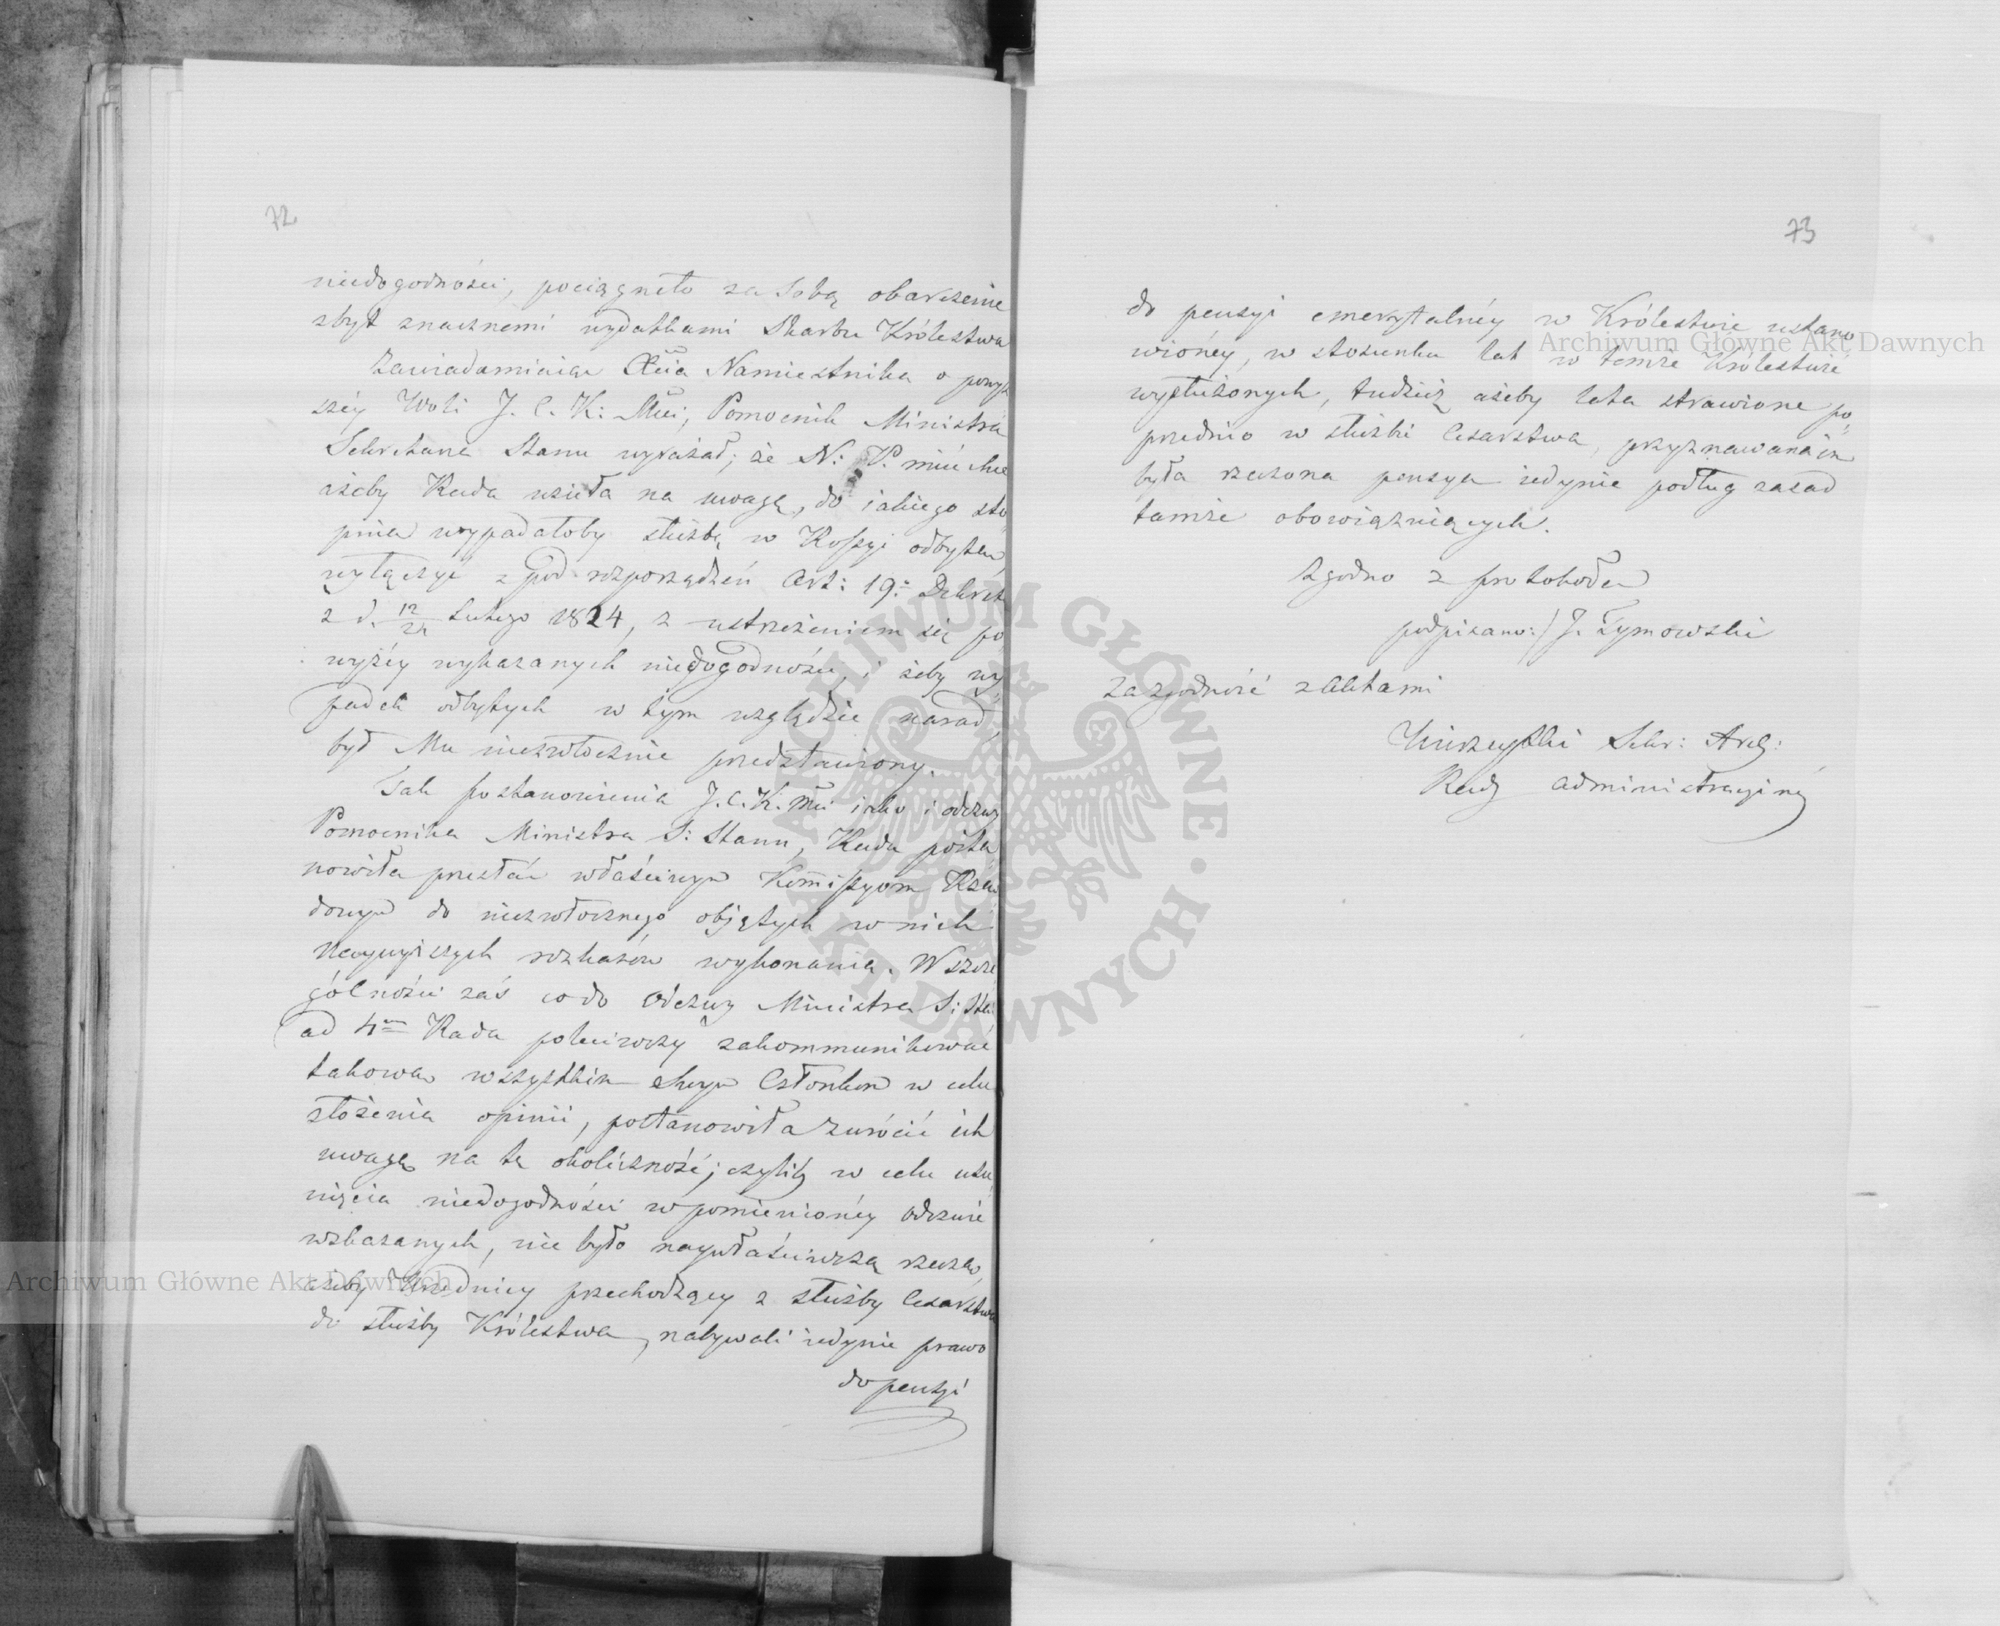 72
niedogodności, pociągnęło za sobą obarczenie
zbyt znacznemi wydatkami Skarbu Królestwa
Zawiadamiaiąc Xcia Namiestnika o powyż
széy Woli J. C. K. Mci, Pomocnik Ministra
Sekretarza Stanu wyraził, że N. P. mieć chce
ażeby Rada wzięła na uwagę, do iakiego sto
pnia wypadałoby służbę w Rossyi odbytą,
wyłączyć z pod rozporządzeń Art: 19. Dekretu
z d. 12/24 Lutego 1824, z ustrzeżeniem się po
wyżéy wykazanych niedogodności, i żeby wy
padek odbytych w tym względzie narad,
był Mu niezwłocznie przedstawiony.
Tak postanowienia J. C. K. Mci iako i odezwy
Pomocnika Ministra S: Stanu, Rada posta
nowiła przesłać właściwym Kommissyom Rzą
dowym do niezwłocznego objętych w nich
Naywyższych rozkazów wykonania. W szcze
gólności zaś co do Odezwy Ministra S: Stanu
ad 4m Rada poleciwszy zakommunikować
takową wszystkim swym Członkom w celu
złożenia opinii, postanowiła zwrócić ich
uwagę na tę okoliczność; czyliby w celu usu
nięcia niedogodności wpomienionéy Odezwie
wskazanych, nie było naywłaściwszą rzeczą,
ażeby Urzędnicy przechodzący z służby Cesarstwa
do służby Królestwa, nabywali iedynie prawo
do pensyi
73
do pensyi emerytalnéy w Królestwie ustano
wionéy, w stosunku lat w temże Królestwie
wysłużonych, tudzież ażeby lata strawione po
przednio w służbie Cesarstwa, przyznawana im
była rzeczona pensya iedynie podług zasad
tamże obowiązuiących.
Zgodno z protokołem
podpisano:/ J. Tymowski
Za zgodność z Aktami
Sekr: Arch:
Rady Administracyjnéy
Archiwum Główne Akt Dawnych
Archiwum Główne Akt Dawnych
ARCHIWUM GŁÓWNE · AKT DAWNYCH ·